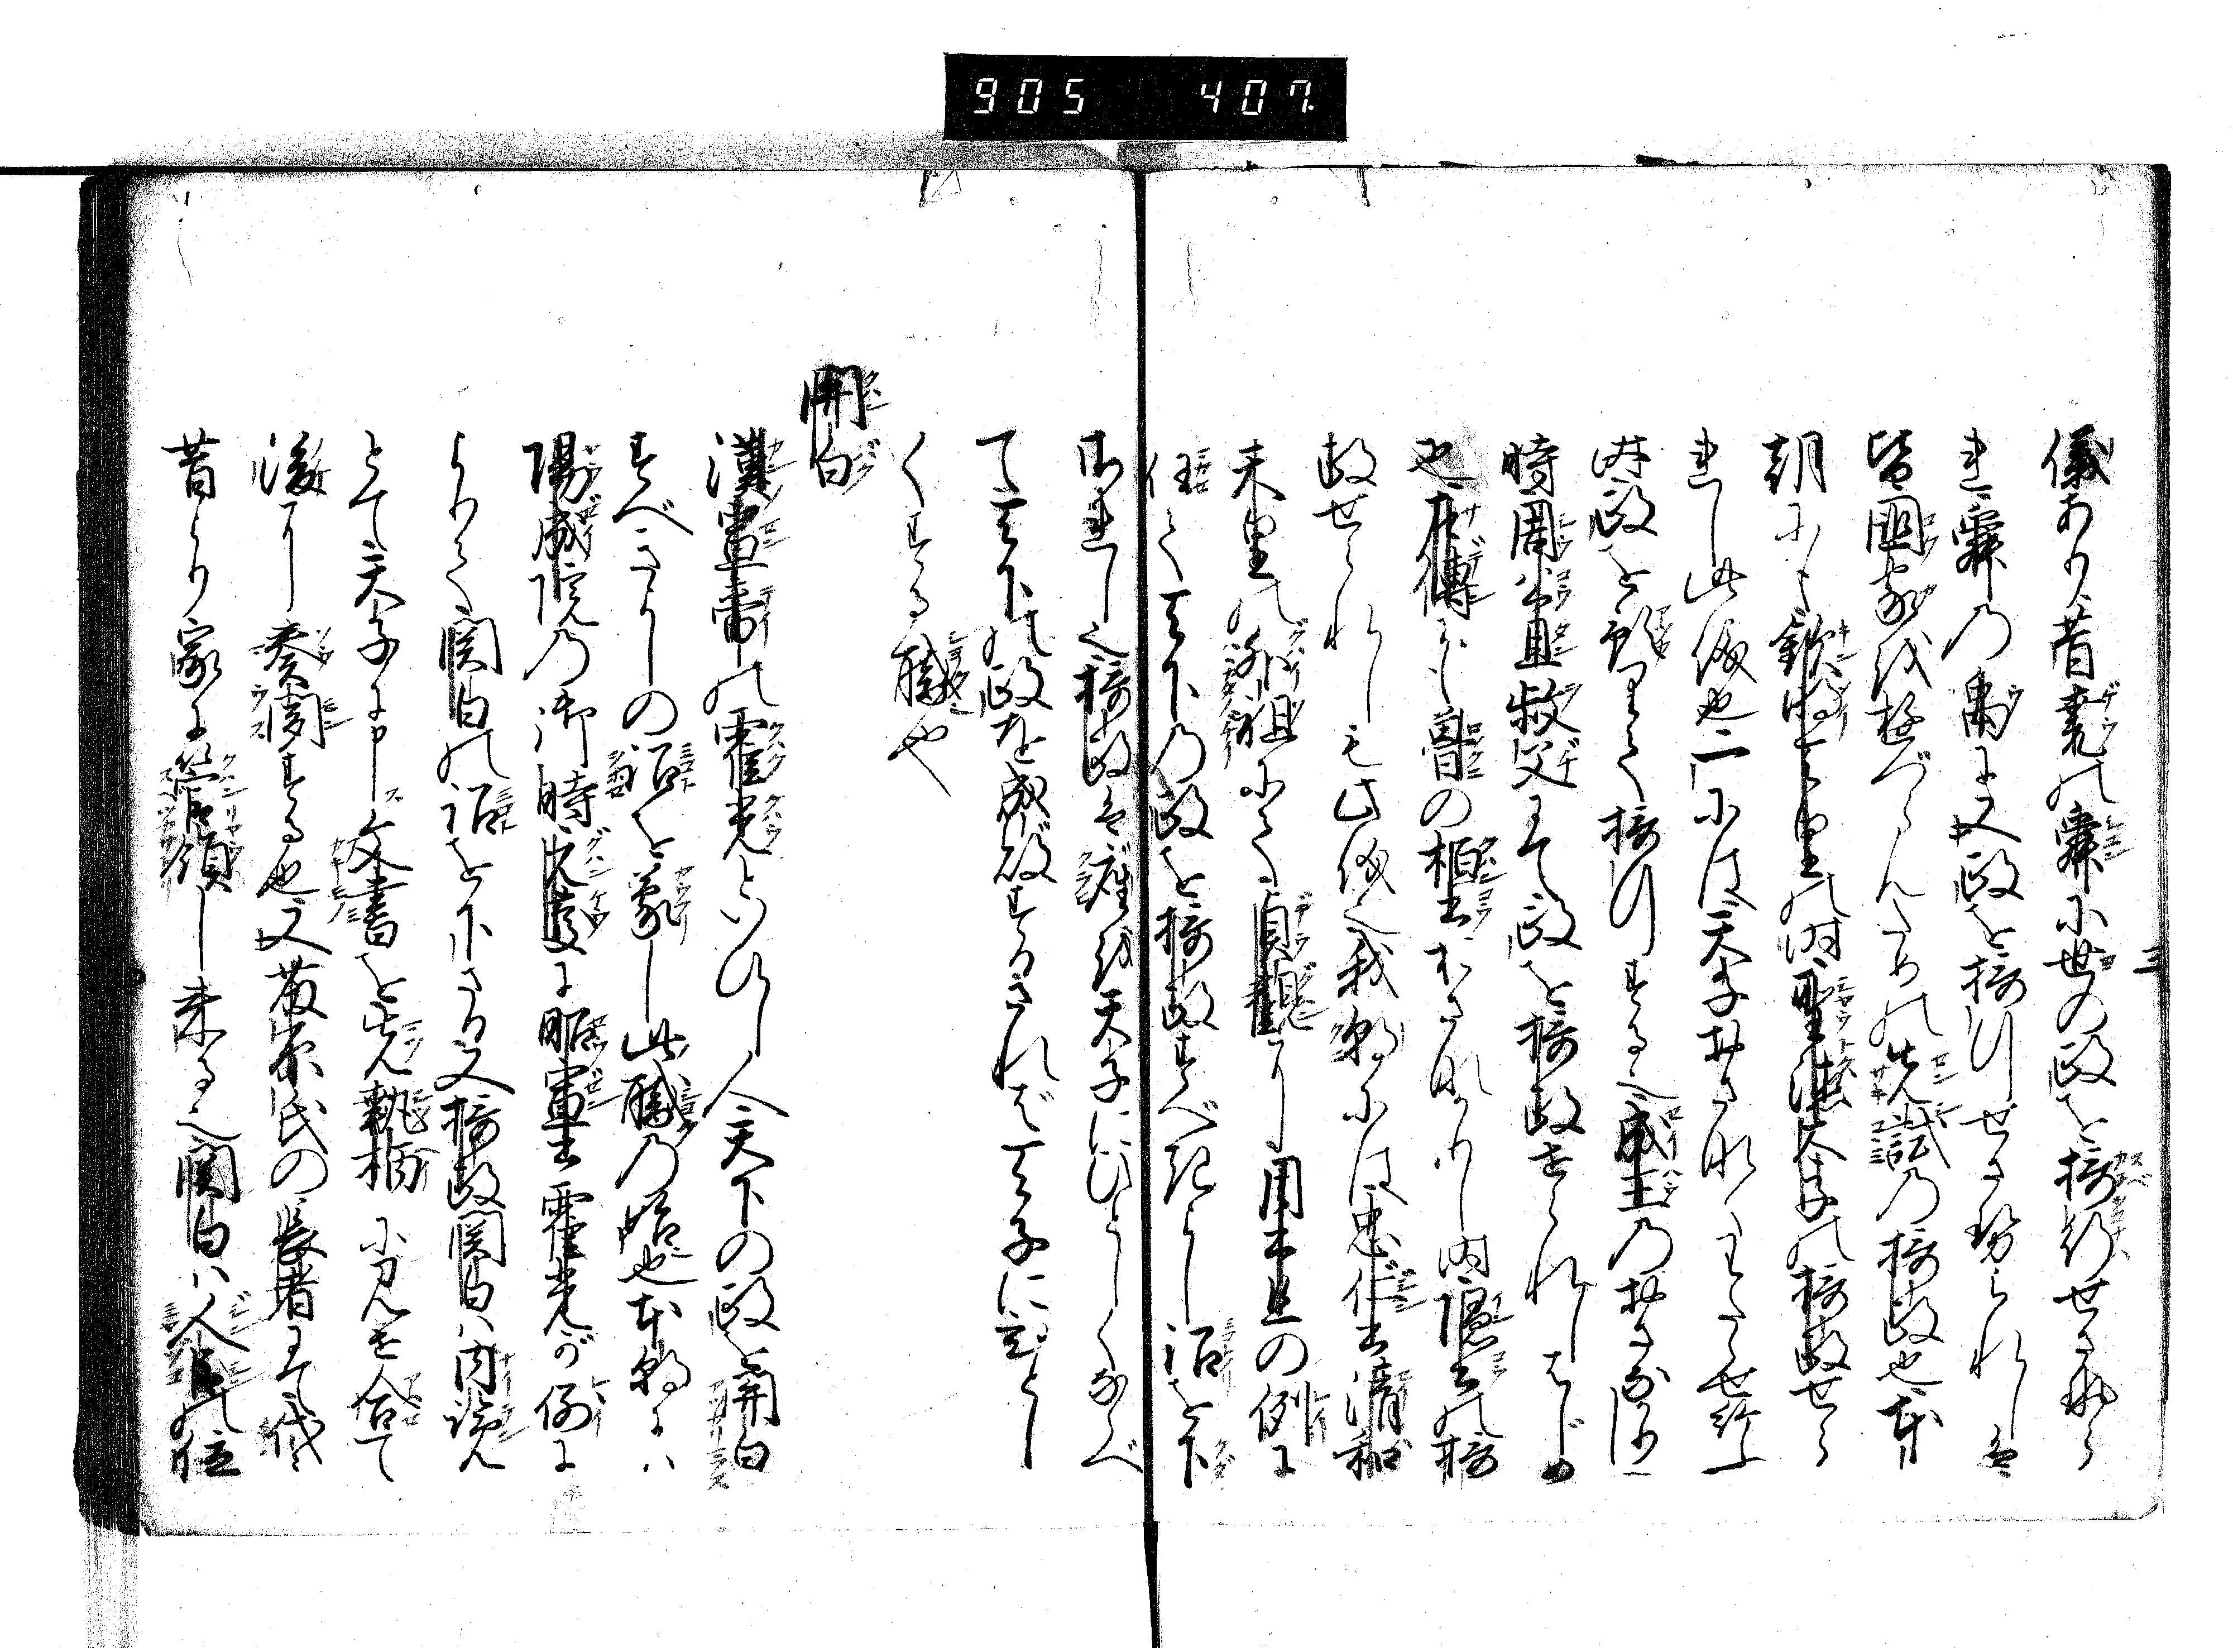 905 407
三
儀あり昔堯の舜に世の政を摂行せさせら
れ舜の禹に又政を摂行せさせられしは
皆国家を授づらんための先試の摂政也本
朝にて欽明と申の時聖徳太子の摂政せら
れし此儀也二には天子おさなくわたらせ給ふ
時政を預りて摂行する也成王のおさなかりし
時周公旦叔父にて政を摂政せられしはじめ
也左傳にも魯の桓公おさなかりし内隠公の摂
政せられしも此儀也我朝には忠仁公清和
天皇の外祖にて貞観に周公旦の例に
任て天下の政を摂政すべきよし詔を下
されし也摂政は唯天子にひとしくなべ
て天下の政を成敗するされば天子に
くする職や
関白
漢宣帝の霍光といひし人天下の政を関白
すべきよしの詔を蒙し此職の始也本朝には
陽成院の御時元慶に昭宣公霍光が例に
よりて関白の詔を下さる又摂政関白は内覧
とて天子に申文書を先執柄に見せ合て
後に奏聞する也又藤原氏の長者にて氏
昔より家に管領し来る也関白は人臣の位